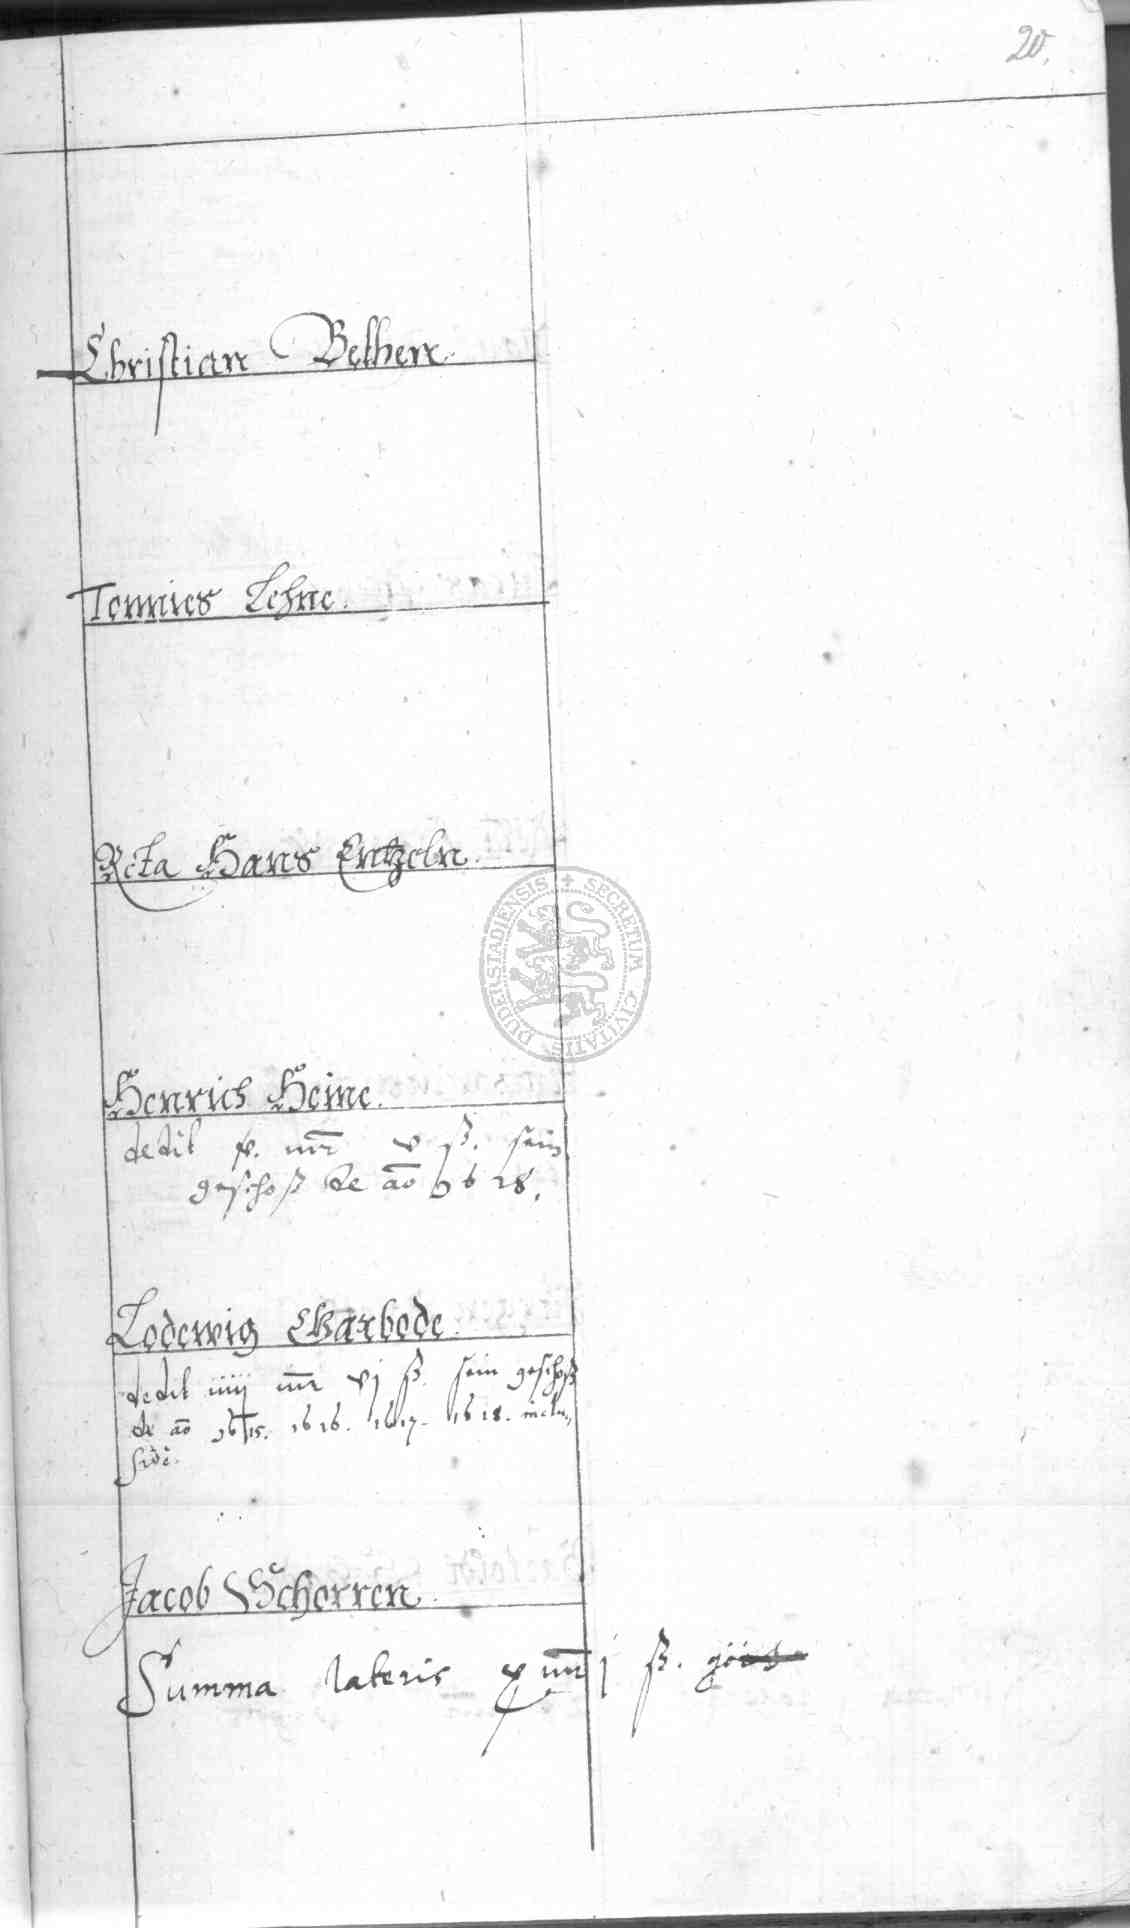 20.
Christian Bethen.
Tonnies Lehne.
Rcta Hans Entzeln.
Henrich Heine.
dedit mr v ß. sein
geschoß de ao 1618.
Lodewig Garbode.
dedit iiij mr vj ß. sein geschoß
de ao 1615. 1616. 1617. 1618. inclu„
sive.
Jacob Schorren.
Summa lateris x mr j ß.
SECRETUM CIVITATIS DUDERSTADIENSIS